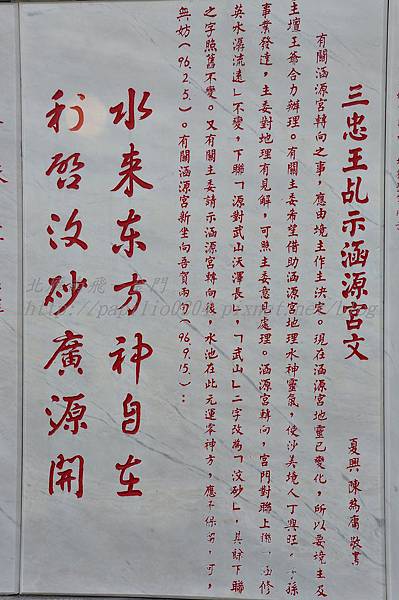 三忠王乩示涵源宮文
夏興 陳為庸 敬書
有關涵源宮轉向之事，應由境主作主決定。現在涵源宮地靈已變化，所以要境主及
主壇王爺合力辦理。有關主委希望借助涵源宮地理水神靈氣，使沙美境人丁興旺。子孫
事業發達，主委對地理有見解，可照主委意見處理。涵源宮轉向，宮門對聯上聯
英水潺流遠」不變，下聯「源對武山天澤長」，「武山」二字改為「汶砂」，其餘下聯
之字照舊不變。又有關主委請示涵源宮轉向後，水池在此元運零神方，應
無妨(96.2.5)。有關涵源宮新坐向吾賀兩句(96.9.15)：
水来东方神自在
利啓汶砂廣源開